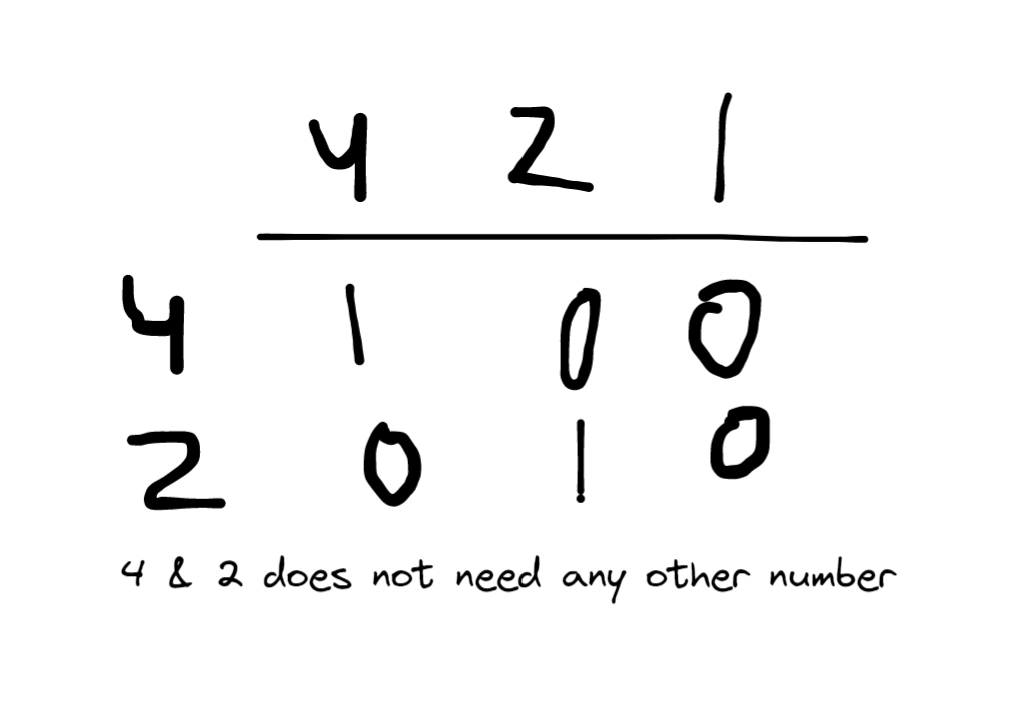 4 2 1
4 1 0 0
2 0 1 0
4 & 2 does not need any other number